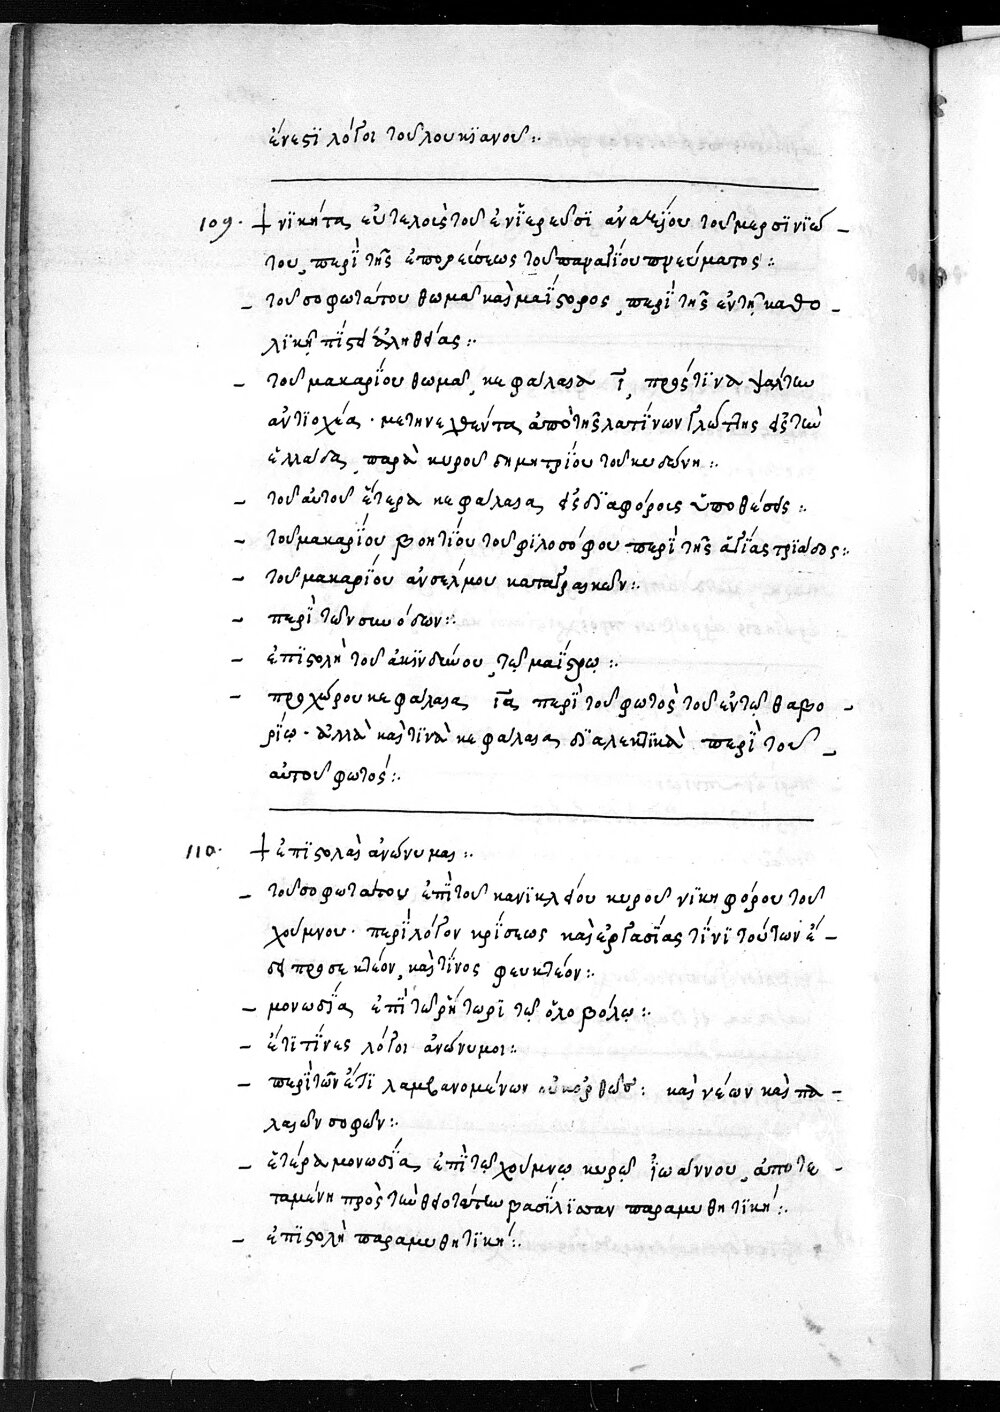 ἔνεστι λόγοι τοῦ λουκϊανοῦ:·
109· + νϊκήτα εὐτελοῦς τοῦ ἐν ἱερεῦσϊ ἀναξίου τοῦ μερσϊνϊώ-
του, περὶ τῆς ἐκπορεύσεως τοῦ παναγίου πνεύματος:
- τοῦ σοφωτάτου θωμᾶ καὶ μαΐστορος, περὶ τῆς ἐν τῇ καθο-
λϊκῇ πίστει ἀληθείας:·
- τοῦ μακαρίου θωμᾶ, κεφάλαια ῑ, πρός τϊνα ψάλτην
ἀντϊοχείας· μετηνεχθέντα ἀπὸ τῆς λατίνων γλώττης εἰς τὴν
ἑλλάδα, παρὰ κυροῦ δημητρίου τοῦ κυδώνη:·
- τοῦ αὐτοῦ ἕτερα κεφάλαια, εἰς δϊαφόροις ὑποθέσεις:·
- τοῦ μακαρίου βοητίου τοῦ φϊλοσόφου περὶ τῆς ἁγίας τρϊάδος:·
- τοῦ μακαρίου ἀνσέλμου κατὰ γραικῶν:·
- περὶ τῶν συνόδων:·
- ἐπϊστολὴ τοῦ ἀκϊνδύνου, τῷ μαΐστρῳ:·
- προχώρου κεφάλαια, ῑᾱ περὶ τοῦ φωτὸς τοῦ ἐν τῷ θαβο-
ρίῳ· ἀλλὰ καὶ τϊνὰ κεφάλαια, δϊαλεκτϊκὰ περὶ τοῦ-
αὐτοῦ φωτός:·
110· + ἐπϊστολαὶ ἀνώνυμαι:·
- τοῦ σοφωτάτου ἐπὶ τοῦ κανϊκλείου κυροῦ νϊκηφόρου τοῦ
χούμνου· περὶ λόγον κρίσεως καὶ ἐργασίας τίνϊ τούτων ἔ-
δει προσεκτέον, καὶ τίνος φευκτέον:·
- μονωδία, ἐπὶ τῷ ῥήτωρϊ τῷ ὁλοβόλῳ:·
- ἔτϊ τίνες λόγοι ἀνώνυμοι:·
- περὶ τῶν ἔτϊ λαμβανομένων : καὶ νέων καὶ πα-
λαιῶν σοφῶν:·
- ἑτέρα μονωδία, ἐπὶ τῷ χούμνῳ κυρῷ ἰωάννου, ἀποτε-
ταμένη πρὸς τὴν θειοτάτην βασίλϊσσαν παραμυθητϊκή:·
- ἐπϊστολὴ παραμυθητϊκή:·